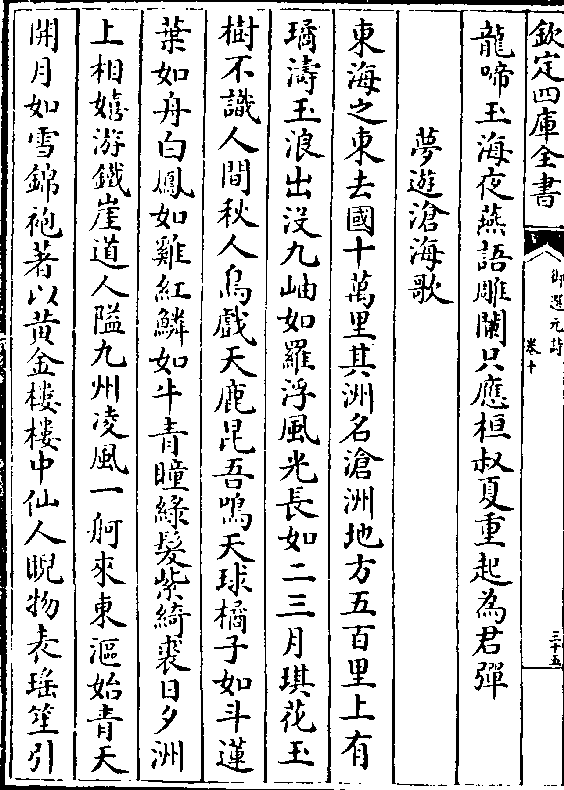 欽定四庫全書
御選元詩
卷十
三十五
龍啼玉海夜燕語雕闌只應桓叔夏重起為君彈
夢遊滄海歌
東海之東去國十萬里其洲名滄洲地方五百里上有
璚濤玉浪出沒九岫如羅浮風光長如二三月琪花玉
樹不識人間秋人鳥戲天鹿昆吾鳴天球橘子如斗蓮
葉如舟白鳳如雞紅鱗如牛青瞳綠髮紫綺裘日夕洲
上相嬉游鐵崖道人隘九州凌風一舸來東漚始青天
開月如雪錦袍著以黃金樓樓中仙人睨物表瑤笙引